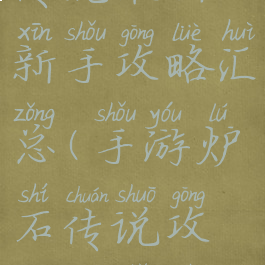 xīn shǒu gōng lüè huì
新手攻略汇
zǒng shǒu yóu lú
总(手游炉
shí chuán shuō gōng
石传说攻